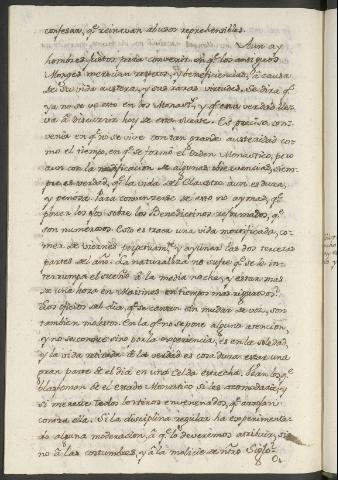 confesar, qᵉ reinavan abusos reprehensibles.
Aun ay
hombres justos para convenir en qᵉ los antiguos
Monges merecian respeto, y beneficiencias, à causa
de su vida austera, y sus raras virtudes. Se dira qᵉ
ya no se ve esto en los Monast.ˢ y qᵉ esta verdad
à discurrir hoy de otra suerte. Es preciso con-
venir en qᵉ no se vive con tan grande austeridad co-
mo el tiempo, en qᵉ se formó el Orden Monastico, pero
aun con la modificacion de algunas observancias, siem-
pre es verdad, qᵉ la vida del Claustro aun es dura,
y penosa. Para convencerse de esto no ay mas, qᵉ
poner los ojos sobre los Benedictinos reformados, qᵉ
son numerosos. Esto es traer una vida mortificada, co-
mer de viernes perpetuam.ᵗᵉ y ayunar las dos terceras
partes del año. La naturaleza no sufre qᵉ se le in-
terrumpa el sueño à la media noche, y estar mas
de una hora en Maitines en tiempos mas rigurosos.
Los oficios del dia, qᵉ se cantan sin mudar de voz, son
tambien molestos. En lo qᵉ no se pone alguna atencion,
y no se conoce sino por la experiencia, es en la soledad,
y la vida retirada. A la verdad es cosa dura estar una
gran parte de el dia en una Celda estrecha. Vean los qᵉ
blasfeman de el estado Monastico si les acomodaria, y
si merece todos los tiros envenenados, qᵉ arrojan
contra ella. Si la disciplina regular ha experimenta-
do alguna moderacion, à qᵉ lo deveremos atribuir, si
no à las costumbres, y à la malicie de nr̃o Siglo?